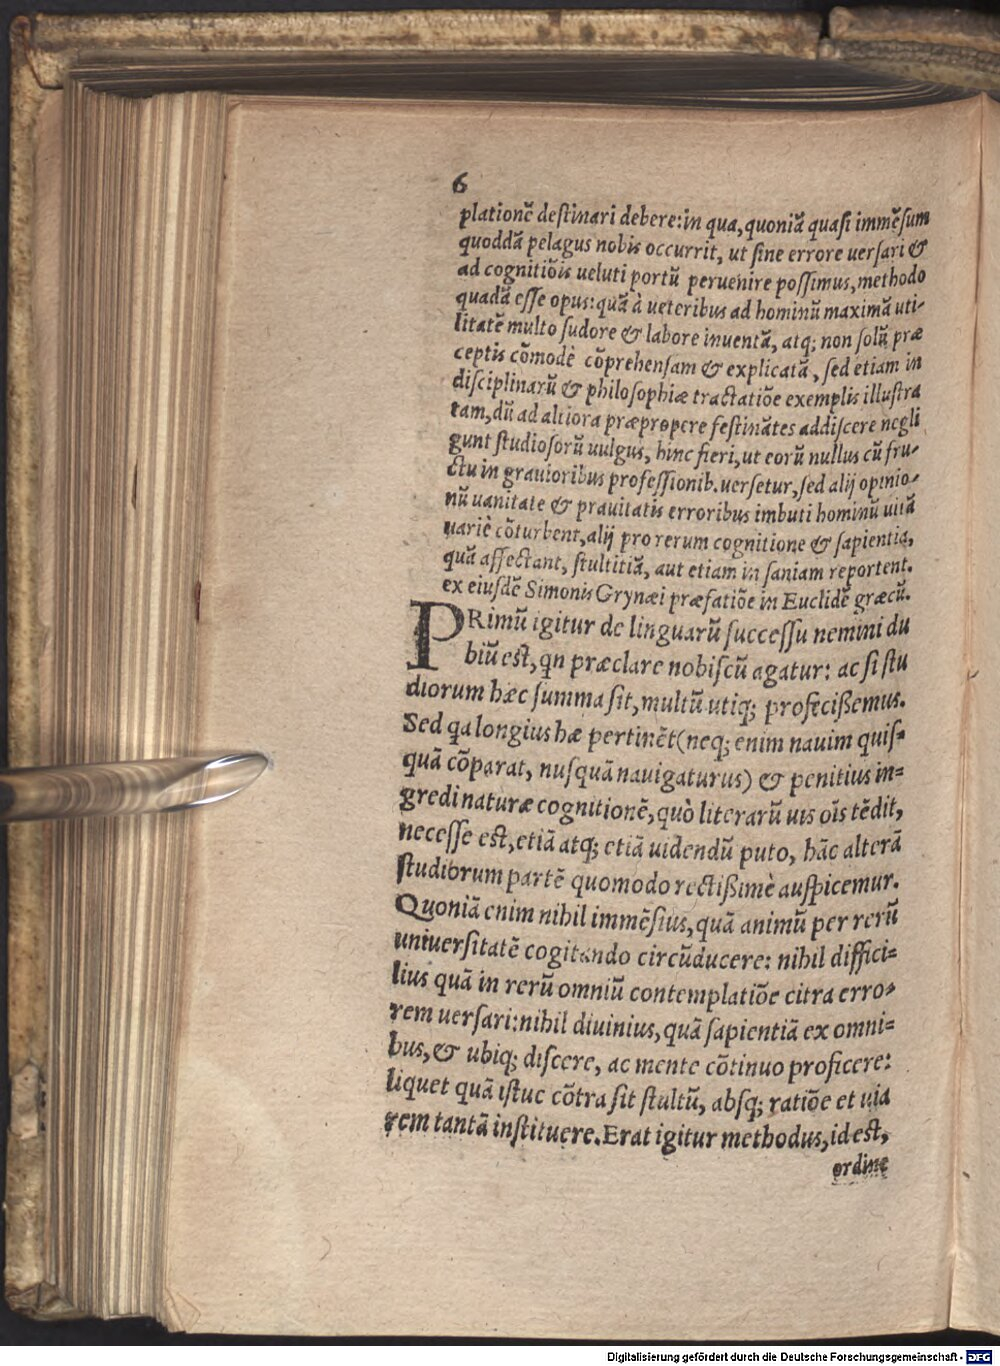 6
plationẽ destinari debere: in qua, quoniã quasi immẽsum
quoddã pelagus nobis occurrit, ut sine errore uersari &
ad cognitiõis ueluti portũ peruenire possimus, methodo
quadã esse opus: quã à ueteribus ad hominũ maximã uti-
litatẽ multo sudore & labore inuentã, atq; non solũ præ
ceptis cõmodè cõprehensam & explicatã, sed etiam in
disciplinarũ & philosophiæ tractatiõe exemplis illustra
tam, dũ ad altiora præpropere festinãtes addiscere negli
gunt studiosorũ uulgus, hinc fieri, ut eorũ nullus cũ fru-
ctu in grauioribus professionib. uersetur, sed alij opinio-
nũ uanitate & prauitatis erroribus imbuti hominũ uitã
uariè cõturbent, alij pro rerum cognitione & sapientia,
quã affectant, stultitiã, aut etiam in saniam reportent.
ex eiusdẽ Simonis Grynæi præfatiõe in Euclidẽ græcũ.
PRimũ igitur de linguarũ successu nemini du
biũ est, qn præclare nobiscũ agatur: ac si stu
diorum hæc summa sit, multũ utiq; profecißemus.
Sed qa longius hæ pertinẽt (neq; enim nauim quis-
quã cõparat, nusquã nauigaturus) & penitius in-
gredi naturæ cognitionẽ, quò literarũ uis oĩs tẽdit,
necesse est, etiã atq; etiã uidendũ puto, hãc alterã
studiorum partẽ quomodo rectißimè auspicemur.
Quoniã enim nihil immẽsius, quã animũ per rerũ
uniuersitatẽ cogitando circũducere: nihil diffici-
lius quã in rerũ omniũ contemplatiõe citra erro-
rem uersari: nihil diuinius, quã sapientiã ex omni-
bus, & ubiq; discere, ac mente cõtinuo proficere:
liquet quã istuc cõtra sit stultũ, absq; ratiõe et uia
rem tantã instituere. Erat igitur methodus, id est,
ordine
Digitalisierung gefördert durch die Deutsche Forschungsgemeinschaft - DFG